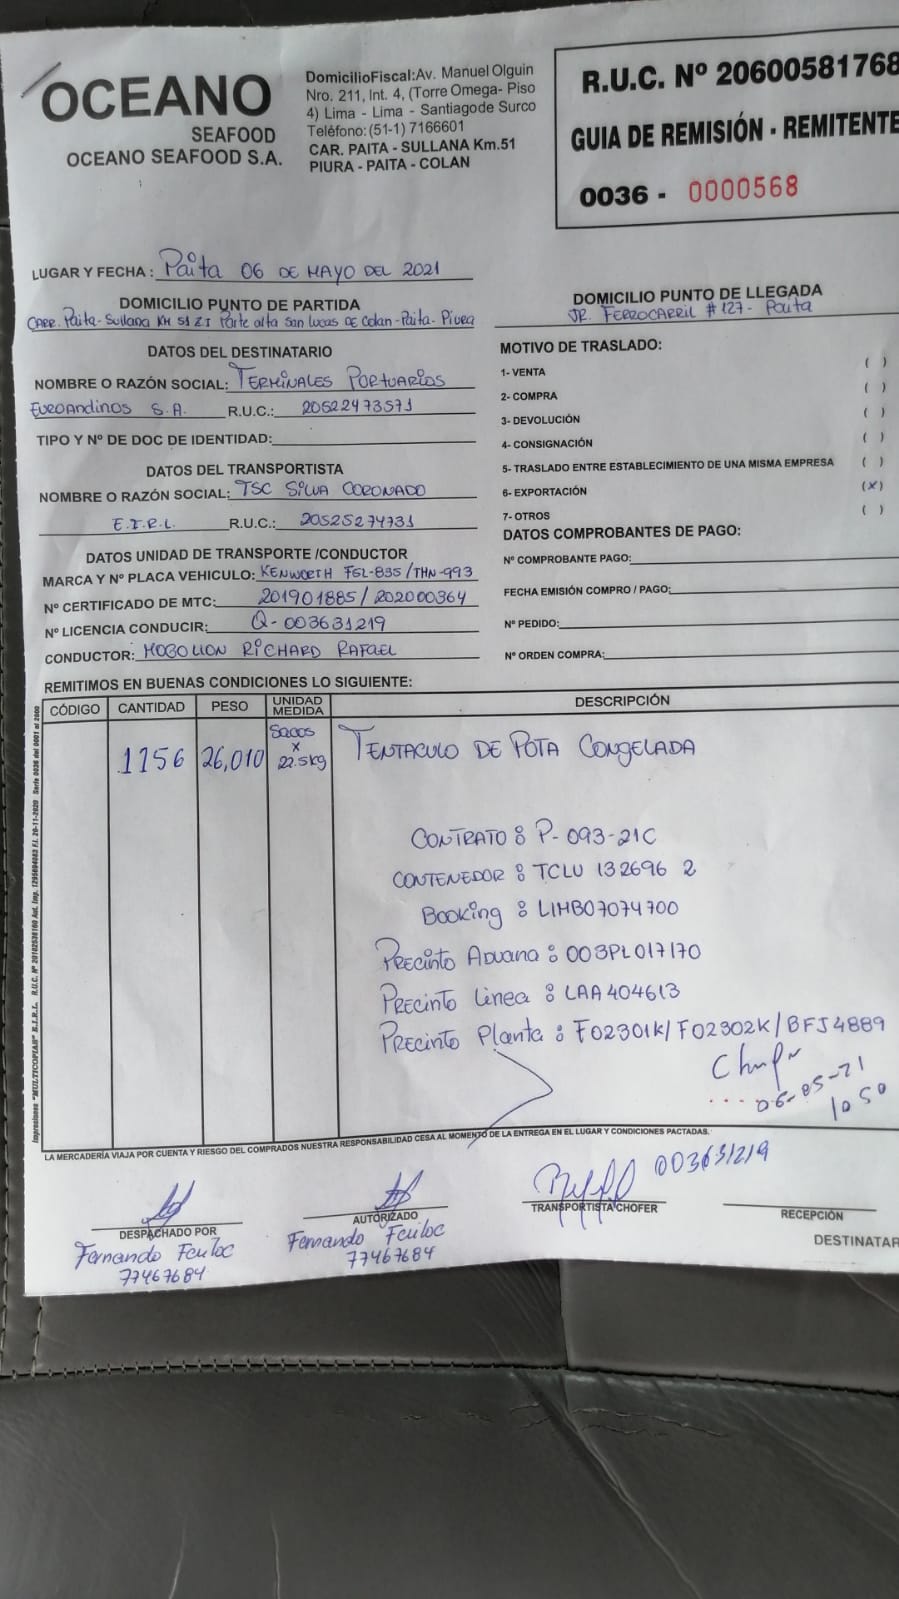 OCEANO
SEAFOOD
OCEANO SEAFOOD S.A.
DomicilioFiscal: Av. Manuel Olguin
Nro. 211, Int. 4, (Torre Omega- Piso
4) Lima - Lima - Santiagode Surco
Teléfono: (51-1) 7166601
CAR. PAITA - SULLANA Km.51
PIURA - PAITA - COLAN
R.U.C. Nº 20600581768
GUIA DE REMISIÓN - REMITENTE
0036 - 0000568
LUGAR Y FECHA : Paita 06 DE MAYO DEL 2021
DOMICILIO PUNTO DE PARTIDA
Carr. Paita-Sullana KM 51 Z I Parte alta San Lucas DE Colan-Paita-Piura
DOMICILIO PUNTO DE LLEGADA
JR. FERROCARRIL #127- Paita
DATOS DEL DESTINATARIO
NOMBRE O RAZÓN SOCIAL: TERMINALES PORTUARIOS
EUROANDINOS S.A. R.U.C.: 20522473571
TIPO Y Nº DE DOC DE IDENTIDAD:
DATOS DEL TRANSPORTISTA
NOMBRE O RAZÓN SOCIAL: TSC SILVA CORONADO
E.I.R.L. R.U.C.: 20525274731
DATOS UNIDAD DE TRANSPORTE /CONDUCTOR
MARCA Y Nº PLACA VEHICULO: KENWORTH F5L-835/THN-993
Nº CERTIFICADO DE MTC: 201901885/202000364
Nº LICENCIA CONDUCIR: Q-003631219
CONDUCTOR: MOGOLLON RICHARD RAFAEL
MOTIVO DE TRASLADO:
1- VENTA ( )
2- COMPRA ( )
3- DEVOLUCIÓN ( )
4- CONSIGNACIÓN ( )
5- TRASLADO ENTRE ESTABLECIMIENTO DE UNA MISMA EMPRESA ( )
6- EXPORTACIÓN (X)
7- OTROS ( )
DATOS COMPROBANTES DE PAGO:
Nº COMPROBANTE PAGO:
FECHA EMISIÓN COMPRO / PAGO:
Nº PEDIDO:
Nº ORDEN COMPRA:
REMITIMOS EN BUENAS CONDICIONES LO SIGUIENTE:
CÓDIGO CANTIDAD PESO UNIDAD MEDIDA DESCRIPCIÓN
1156 26,010 Sacos x 22.5kg TENTACULO DE POTA CONGELADA
CONTRATO : P-093-21C
CONTENEDOR : TCLU 132696 2
Booking : LIMB07074700
PRECINTO ADUANA : 003PL017170
PRECINTO Linea : LAA404613
PRECINTO Planta : F02301K/F02302K/BFJ4889
06-05-21
10 50
LA MERCADERÍA VIAJA POR CUENTA Y RIESGO DEL COMPRADOS NUESTRA RESPONSABILIDAD CESA AL MOMENTO DE LA ENTREGA EN EL LUGAR Y CONDICIONES PACTADAS.
003631219
DESPACHADO POR
Fernando
77467684
AUTORIZADO
Fernando
77467684
TRANSPORTISTA CHOFER
RECEPCIÓN
DESTINATAR